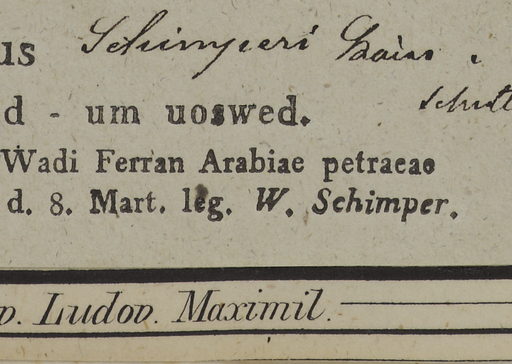 us Schimperi
d - um uoswed. Schult
Wadi Ferran Arabiae petraeae
d. 8. Mart. leg. W. Schimper.
v. Ludov. Maximil.